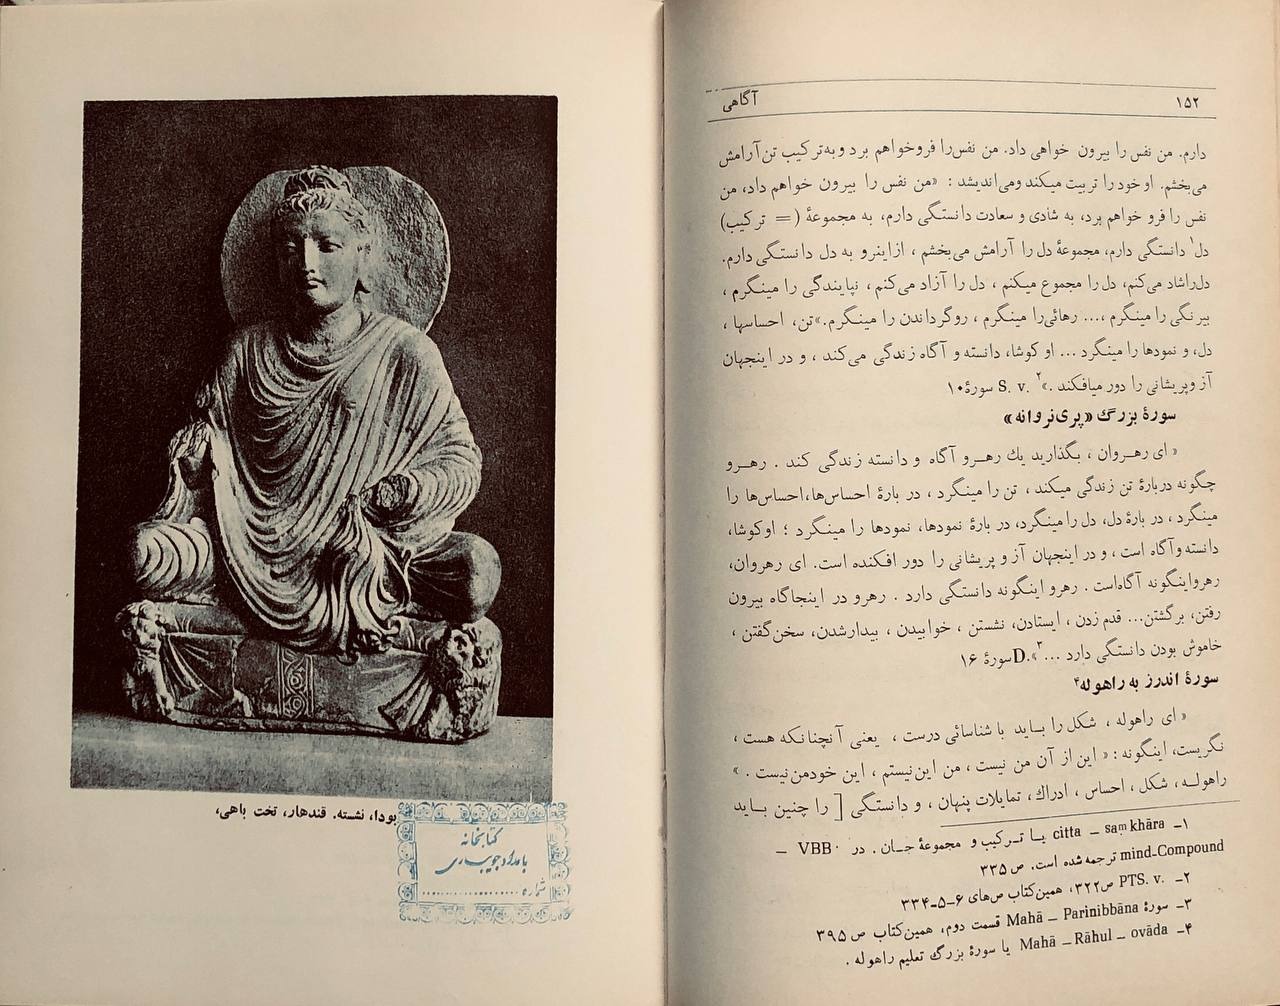 ۱۵۲
آگاهی
دارم. من نفس را بیرون خواهی داد. من نفس‌را فروخواهم برد وبه‌ترکیب تن‌آرامش
می‌بخشم. او خود را تربیت میکند ومی‌اندیشد : «من نفس را بیرون خواهم داد، من
نفس را فرو خواهم برد، به شادی و سعادت دانستگی دارم، به مجموعهٔ (= ترکیب)
دل۱ دانستگی دارم، مجموعهٔ دل را آرامش می‌بخشم ، ازاینرو به دل دانستگی دارم.
دل‌راشاد می‌کنم، دل را مجموع میکنم ، دل را آزاد می‌کنم ، نپایندگی را مینگرم ،
بیرنگی را مینگرم ،... رهائی‌را مینگرم ، روگرداندن را مینگرم.»تن، احساسها ،
دل، و نمودها را مینگرد ... او کوشا، دانسته و آگاه زندگی می‌کند ، و در اینجهان
آز وپریشانی را دور میافکند .»۲ S. v. سورهٔ ۱۰
سورهٔ بزرگ «پری‌نروانه»
« ای رهروان ، بگذارید یك رهرو آگاه و دانسته زندگی کند . رهرو
چگونه دربارهٔ تن زندگی میکند ، تن را مینگرد ، در بارهٔ احساس‌ها،احساس‌ها را
مینگرد ، در بارهٔ دل، دل را مینگرد، در بارهٔ نمودها، نمودها را مینگرد ؛ اوکوشا،
دانسته وآگاه است ، و در اینجهان آز و پریشانی را دور افکنده است. ای رهروان،
رهرواینگونه آگاه‌است . رهرو اینگونه دانستگی دارد . رهرو در اینجاگاه بیرون
رفتن، برگشتن... قدم زدن ، ایستادن، نشستن ، خوابیدن ، بیدارشدن، سخن‌گفتن ،
خاموش بودن دانستگی دارد ...»۳.D سورهٔ ۱۶
سورهٔ اندرز به راهوله۴
« ای راهوله ، شکل را بـاید با شناسائی درست ، یعنی آنچنانکه هست ،
نگریست، اینگونه : « این از آن من نیست ، من این‌نیستم ، این خودمن‌نیست . »
راهولـه، شکل ، احساس ، ادراك، تمایلات پنهان ، و دانستگی [ را چنین بـاید
۱ـ citta – saṃkhāra یـا تـرکیب و مجموعهٔ جـان . در VBB· –
mind-Compound ترجمه شده است. ص ۳۳۵
۲ـ PTS. v. ص۳۲۲، همین‌کتاب ص‌های ۶-۵-۳۳۴
۳ـ سورهٔ Mahā – Parinibbāna قسمت دوم، همین‌کتاب ص ۳۹۵
۴ـ Mahā – Rāhul – ovāda یا سورهٔ بزرگ تعلیم راهوله .
بودا، نشسته. قندهار، تخت باهی،
کتابخانه
بامداد جویباری
شماره ....................